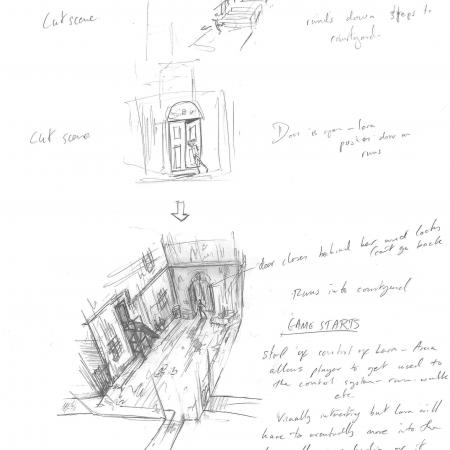 Cut scene
down steps to
courtyard.
Cut scene
Door is open - Lara
pushes door
runs
door closes behind her and locks
can't go back
Runs into courtyard
GAME STARTS
of control of Lara - Area
allows player to get used to
the control system - run - walk
etc
Visually interesting but Lara will
have to eventually move into the